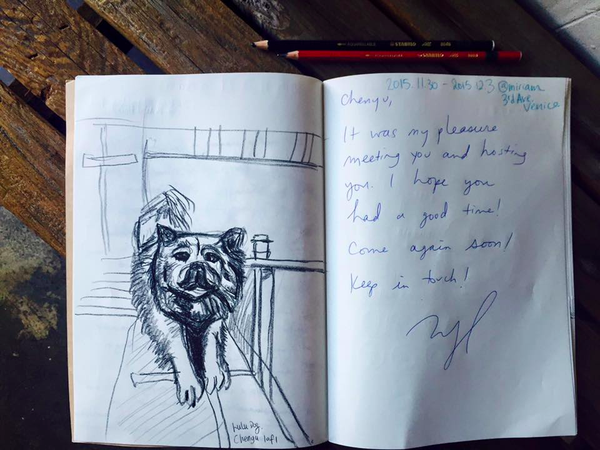 2015.11.30 - 2015 12.3 @miriam
3rd Ave.
Venice
Chengu,
It was my pleasure
meeting you and hosting
you. I hope you
had a good time!
Come again soon!
Keep in touch!
Chengu